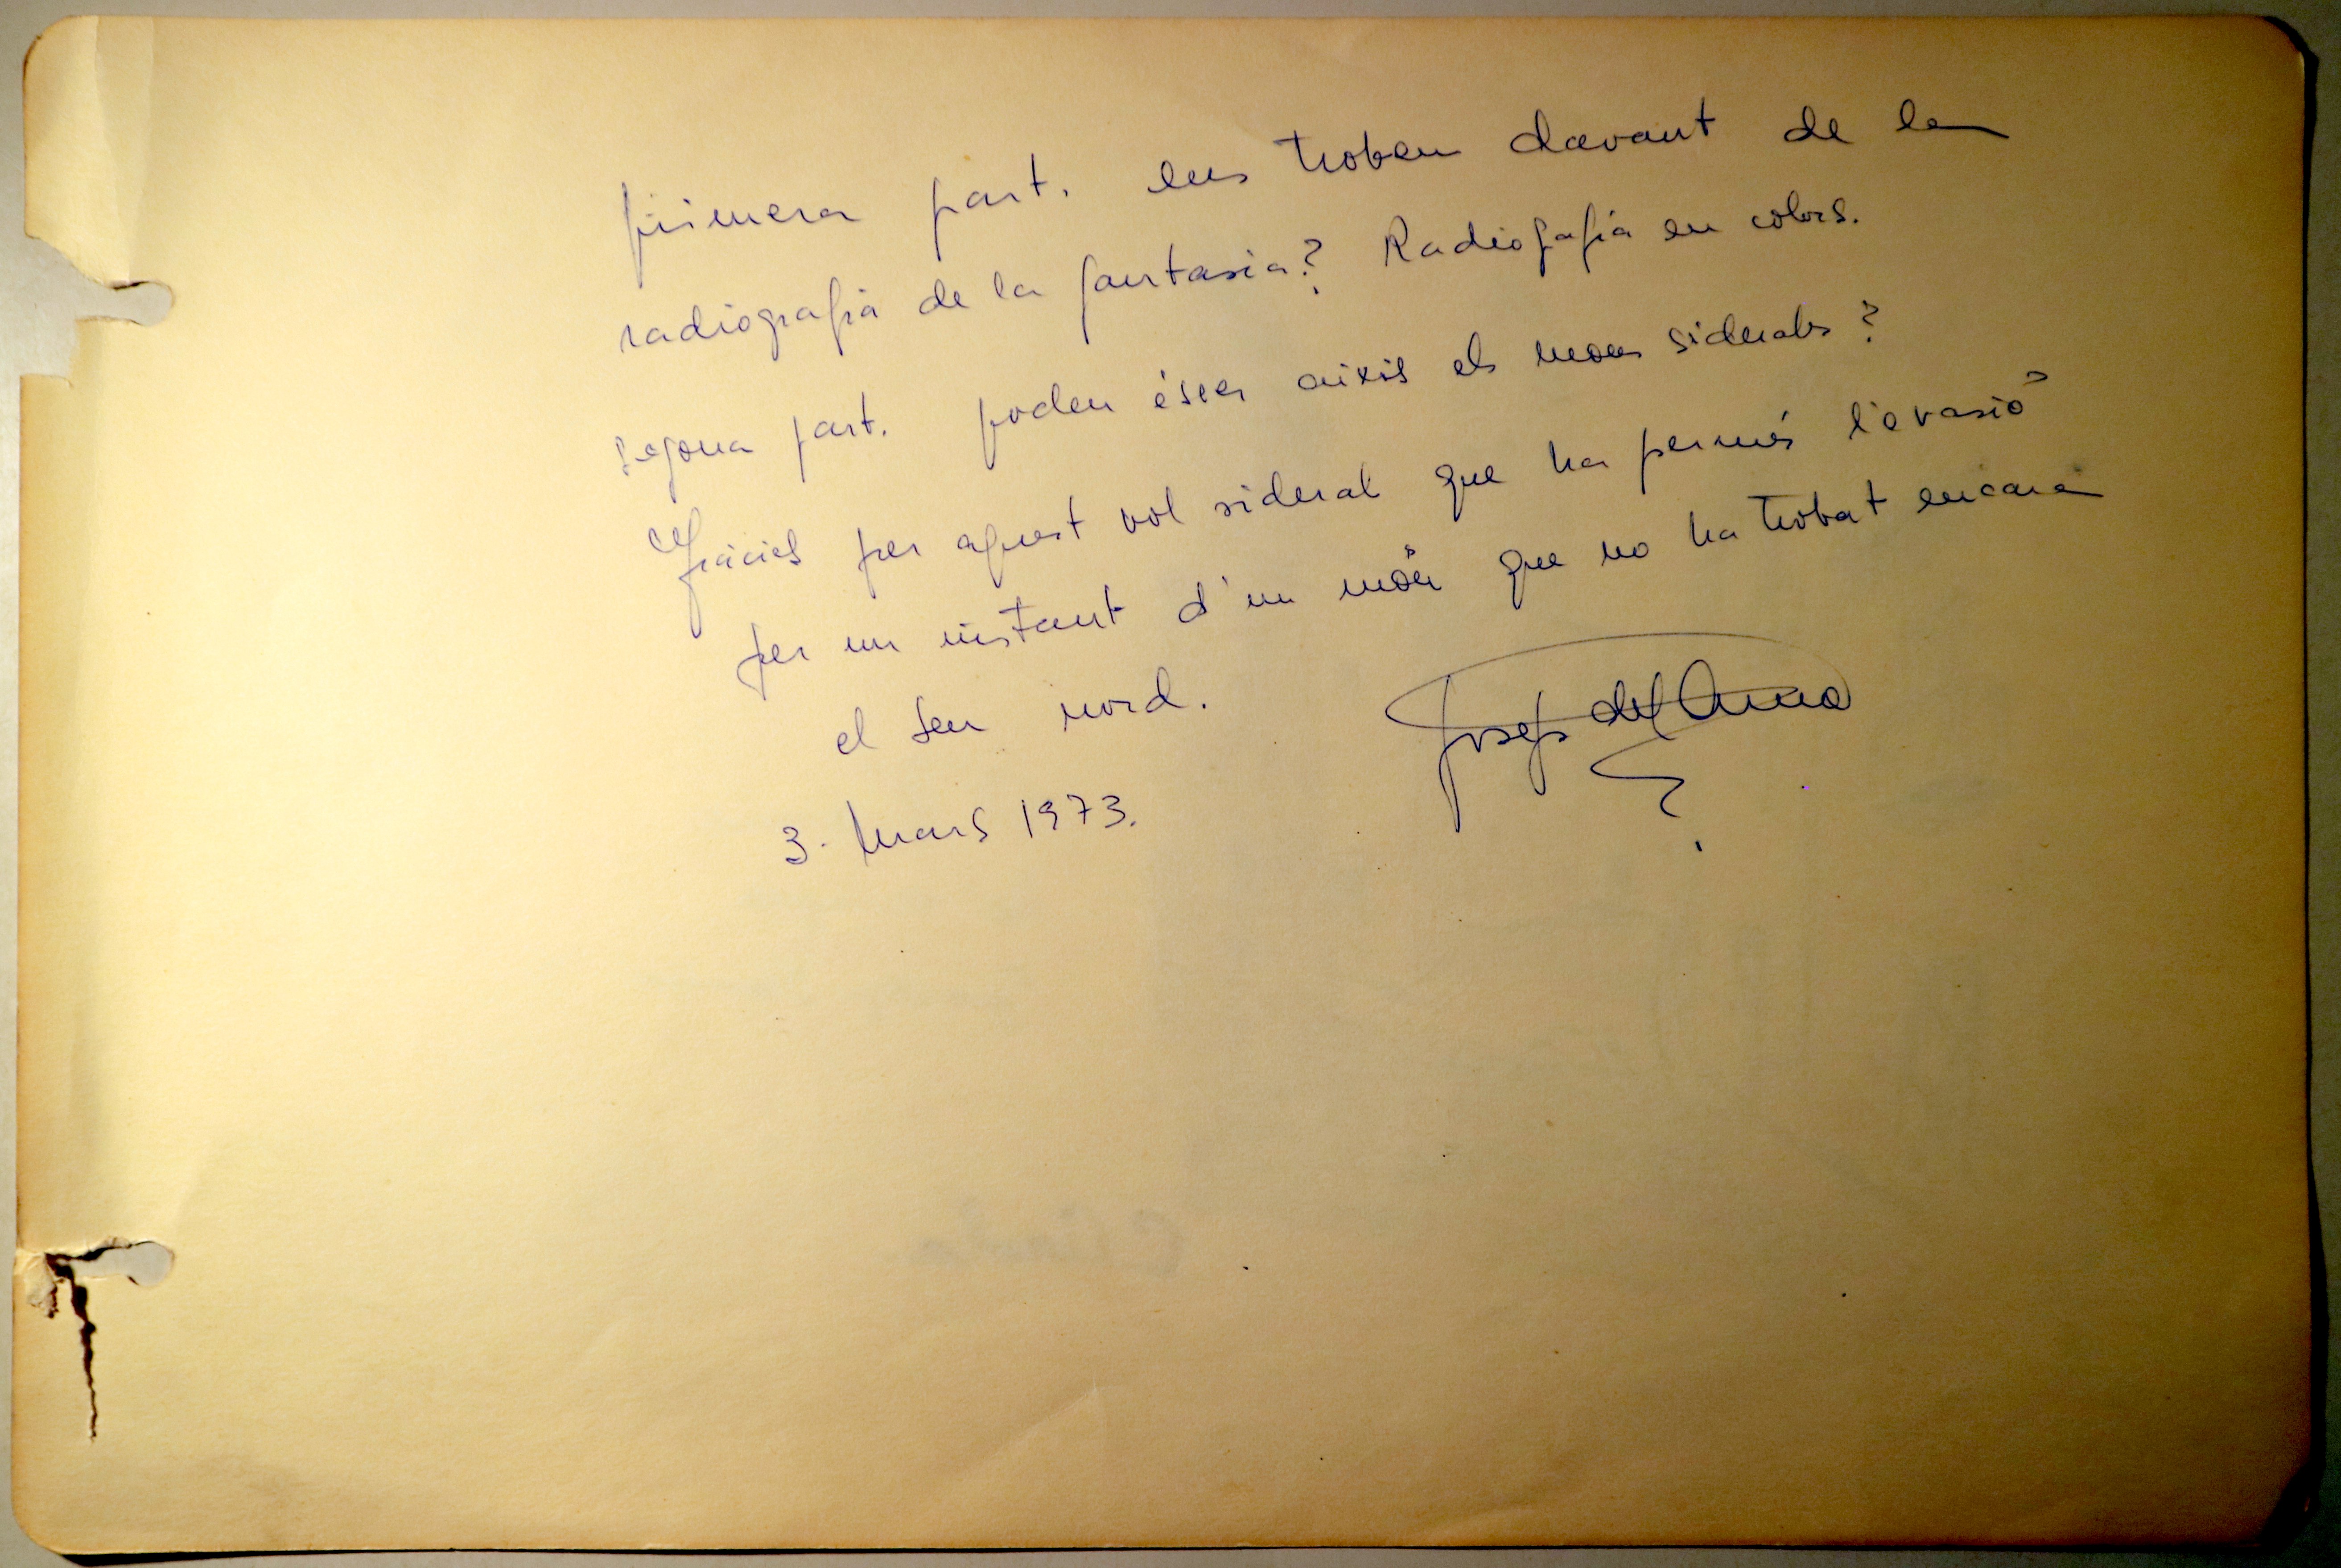 primera part. ens troben davant de la
radiografia de la fantasia? Radiografia en colors.
segona part. poden ésser aixís els mons siderals?
Gràcies per aquest vol sideral que ha permés l'evasió
per un instant d'un món que no ha trobat encara
el seu nord.
Josep del
3. Mars 1973.